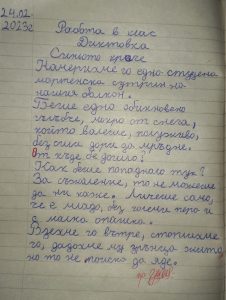 24.02.
2023г.
Работа в клас
Диктовка
Синьото краче
Намерихме го една студена
мартенска сутрин на
нашия балкон.
Беше едно обикновено
гълъбче, мокро от снега,
който валеше, полуживо,
без сили дори да мръдне.
От къде бе дошло?
Как беше попаднало тук?
За съжаление, то не можеше
да ни каже. Личеше само,
че е младо, без пера и
с малка опашка.
Взехме го вътре, стоплихме
го, дадохме му зрънца жито,
но то не да яде.